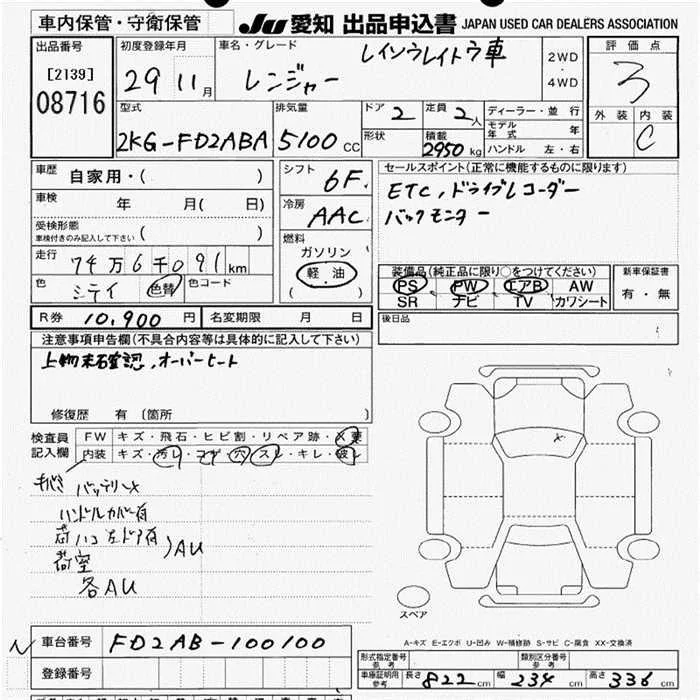 車内保管・守衛保管
JU 愛知 出品申込書 JAPAN USED CAR DEALERS ASSOCIATION
出品番号
[2139]
08716
初度登録年月
29 11月
車名・グレード
レインボウレイトウ車
レンジャー
2WD
・
4WD
評価点
3
外装 内装
C
型式
2KG-FD2ABA
排気量
5100 CC
ドア 2
形状
定員 2人
積載 2950 kg
ディーラー・並行
モデル年式 年
ハンドル 左・右
車歴
自家用・( )
車検
年 月( 日)
受検形態
車検付きのみ記入して下さい ( )
走行
74万6千091km
色
シテイ 色替 色コード
シフト
6F
冷房
AAC
燃料
ガソリン
軽油
( )
セールスポイント(正常に機能するものに限ります)
ETC, ドライブレコーダー
バックモニター
装備品(純正品に限り○をつけてください)
PS PW エアB AW
SR ナビ TV カワシート
新車保証書
有・無
R券 10,900 円
名変期限 月 日
後日品
注意事項申告欄(不具合内容等は具体的に記入して下さい)
上物未確認, オーバーヒート
修復歴 有 (箇所 )
検査員
記入欄
FW キズ・飛石・ヒビ割・リペア跡・X要
内装 キズ・汚レ・コゲ・穴・スレ・キレ・破レ
バッテリーX
ハンドルカバー有
荷ハコ左ドア有
荷室
AU
各AU
スペア
A-キズ E-エクボ U-凹み W-補修跡 S-サビ C-腐食 XX-交換済
車台番号 FD2AB-100100
登録番号
形式指定番号 参考
類別区分番号 参考
車庫証明用 参考 長さ 822 cm 幅 234 cm 高さ 336 cm